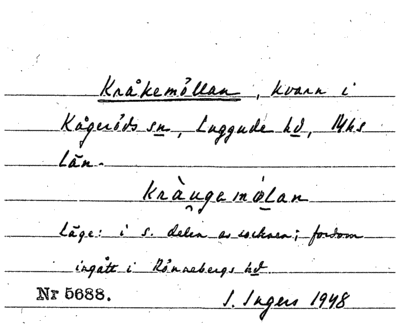 Kråkemöllan, kvarn i
Kågeröds sn, Luggude hd, Mhs
län.
Kråugemölan
Läge: i s. delen av socknen; fordom
ingått i Rönnebergs hd
Nr 5688.
I. Ingers 1948